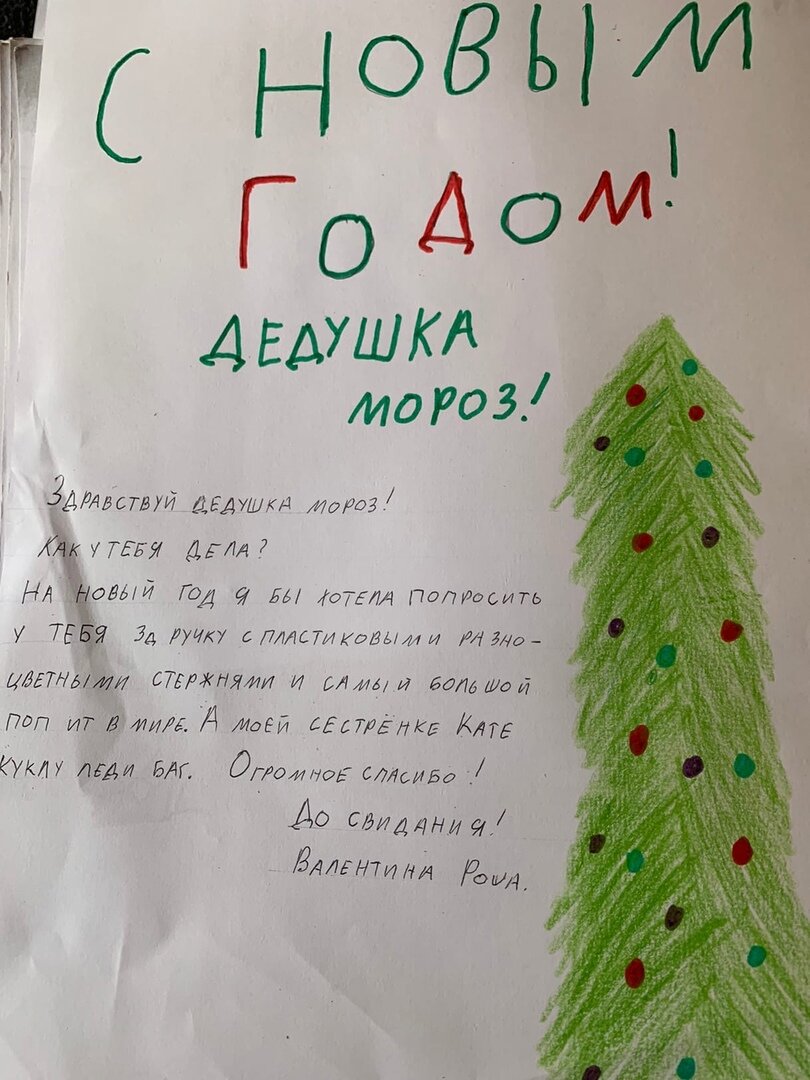 С НОВЫМ
ГОДОМ!
ДЕДУШКА
МОРОЗ!
ЗДРАВСТВУЙ ДЕДУШКА МОРОЗ!
КАК У ТЕБЯ ДЕЛА?
НА НОВЫЙ ГОД Я БЫ ХОТЕЛА ПОПРОСИТЬ
У ТЕБЯ 3Д РУЧКУ С ПЛАСТИКОВЫМИ РАЗНО-
ЦВЕТНЫМИ СТЕРЖНЯМИ И САМЫЙ БОЛЬШОЙ
ПОП ИТ В МИРЕ. А МОЕЙ СЕСТРЁНКЕ КАТЕ
КУКЛУ ЛЕДИ БАГ. ОГРОМНОЕ СПАСИБО!
ДО СВИДАНИЯ!
ВАЛЕНТИНА РОША.